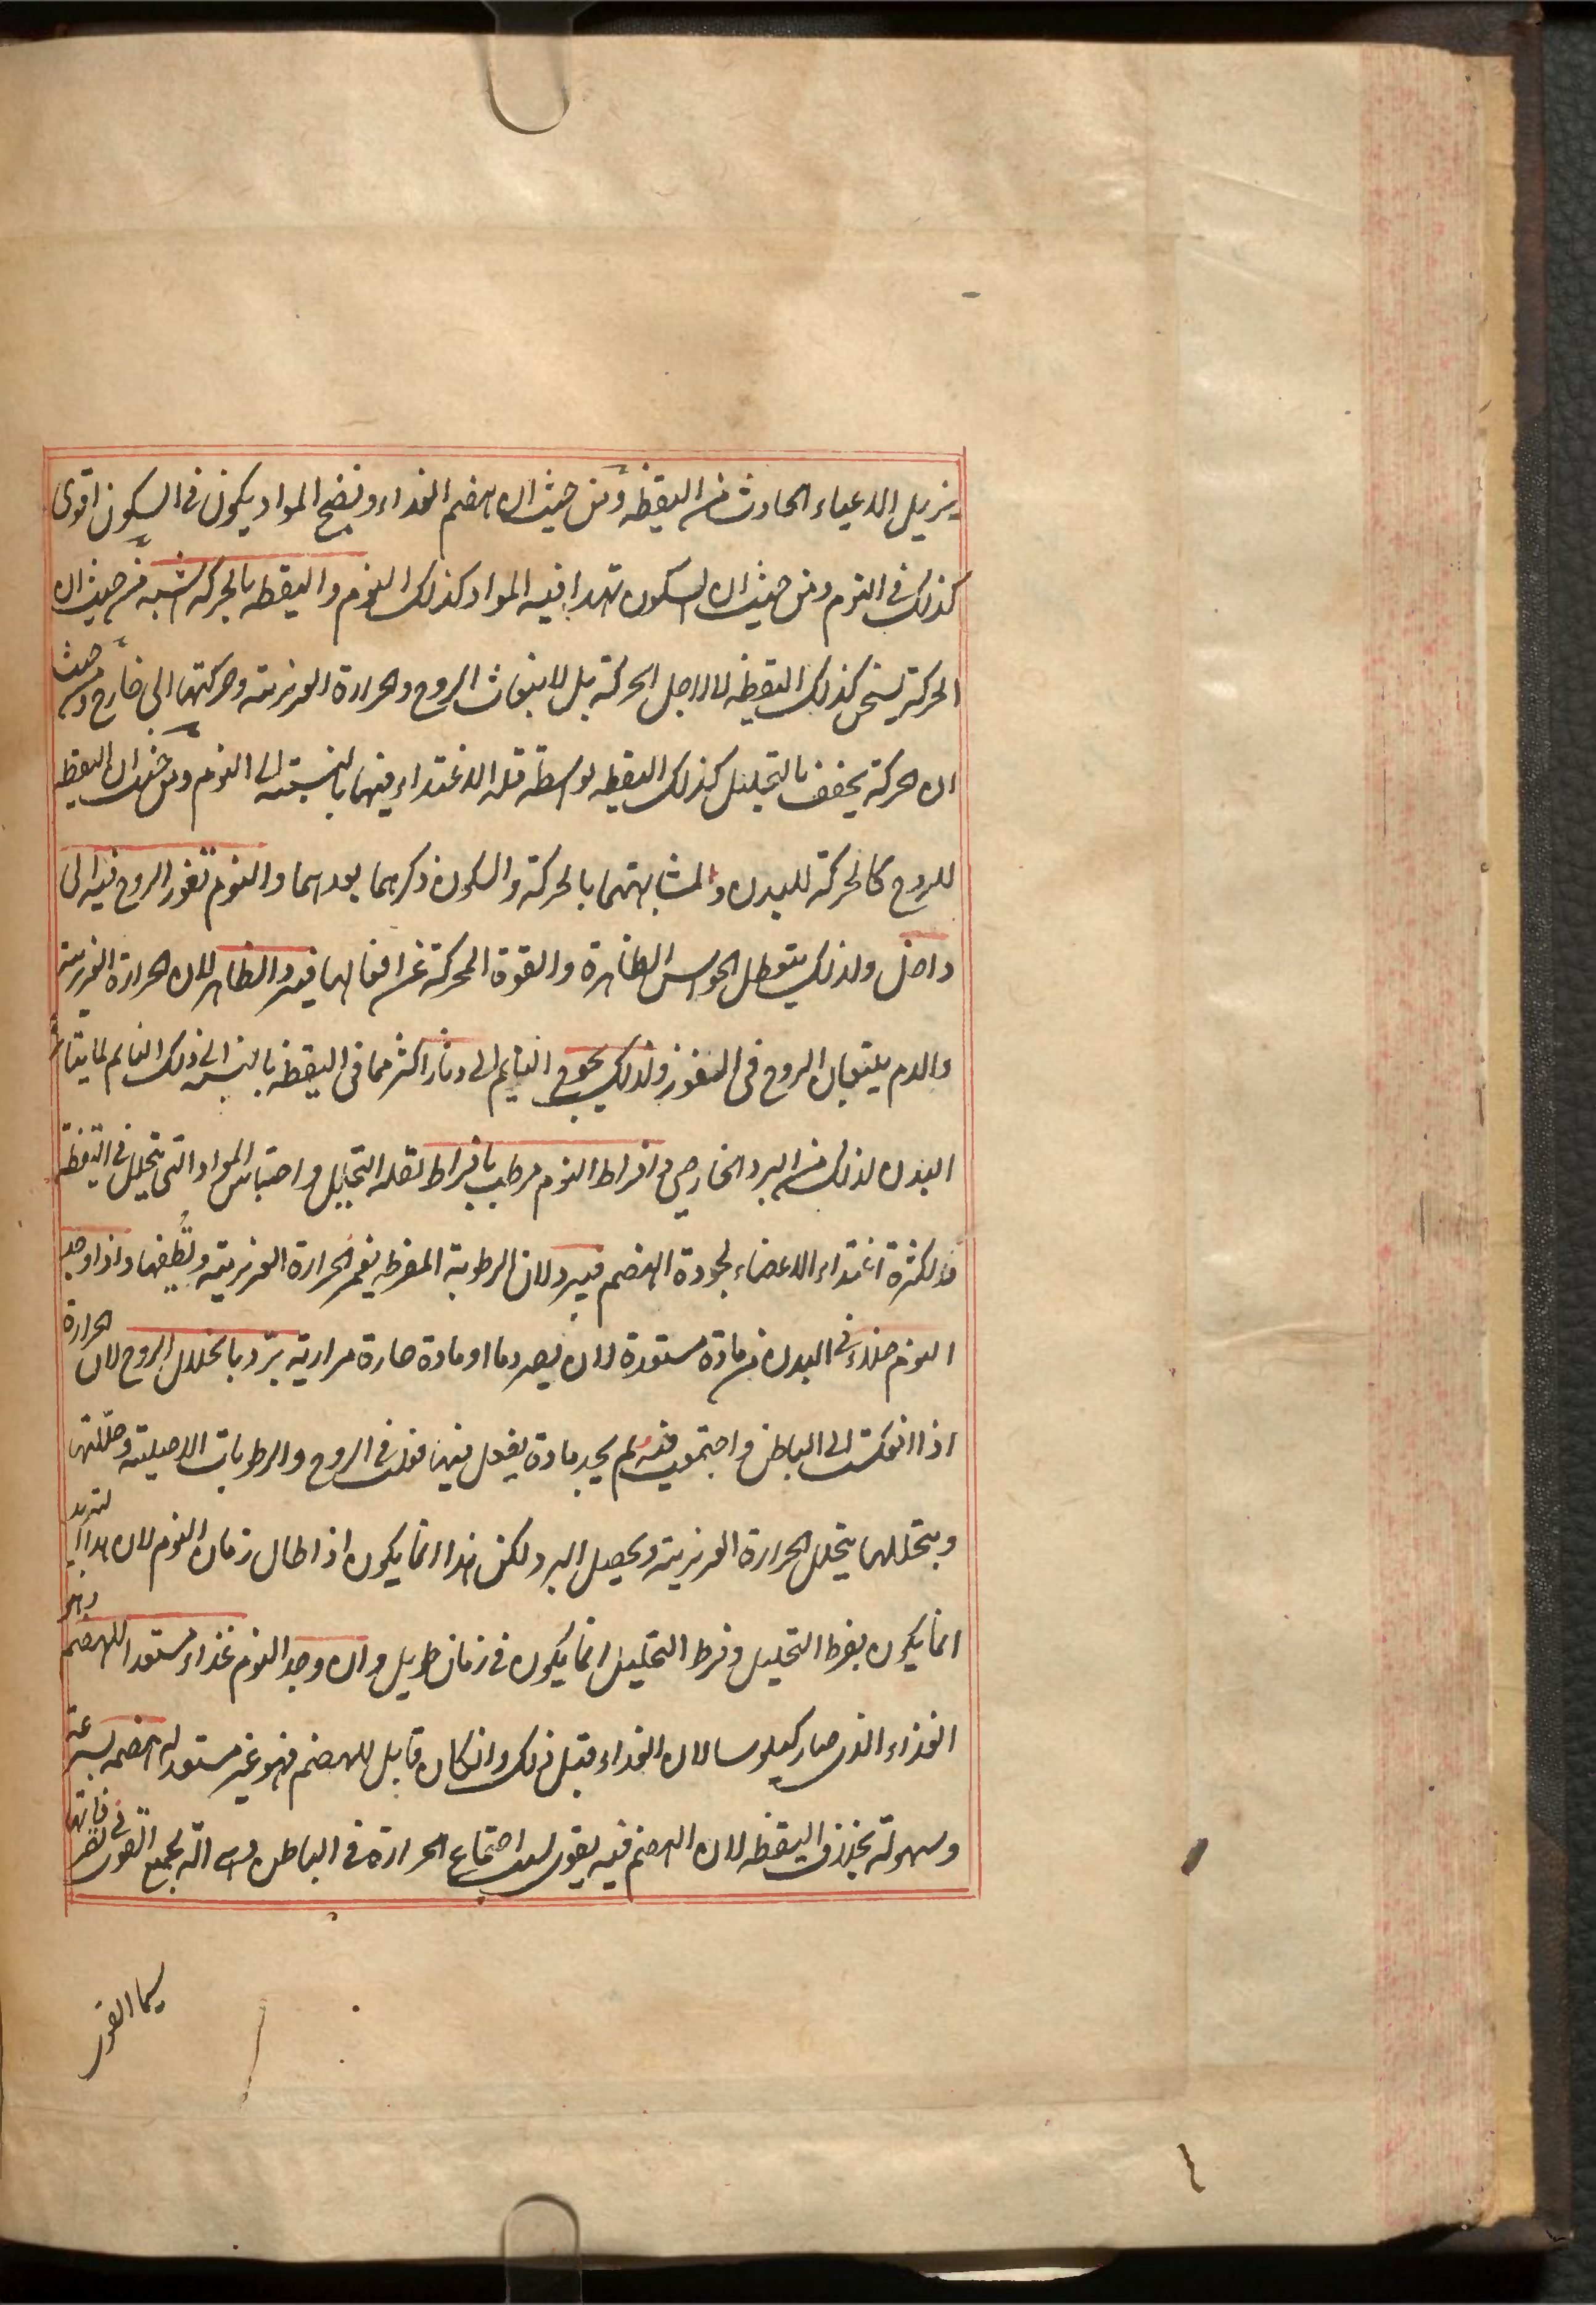 يزيل الاعياء الحادث من اليقظه ومن حيث ان هضم الغذاء ونضج المواد يكون في السكون اقوى
كذلك في النوم ومن حيث ان السكون تهدا فيه المواد كذلك النوم واليقظه بالحركه اشبه من حيث ان
الحركة يسخن كذلك اليقظه لا لاجل الحركة بل لانبعاث الروح والحرارة الغريزيته وحركتهما الى خارج ومن حيث
ان الحركة يجفف بالتحليل كذلك اليقظه بواسطة قله الاغتذاء فيها بالنسبته الى النوم ومن حيث ان اليقظه
للروح كالحركة للبدن ولمشابهتهما بالحركة والسكون ذكرهما بعدهما والنوم تغور الروح فيه الى
داخل ولذلك يتعطل الحواس الظاهرة والقوة المحركة عن افعالها فيبرد الظاهر لان الحرارة الغريزيته
والدم يتبعان الروح في الغور ولذلك يحوج النايم الى دثار اكثر مما في اليقظه بالنسبه الى ذلك النايم لما يتاثر
البدن لذلك من البرد الخارجي وافراط النوم مرطب بافراط لقله التحليل واحتباس المواد التى يتحلل في اليقظة
ولكثرة اغتذاء الاعضاء لجودة الهضم فيبرد لان الرطوبة المفرطه يغمر الحرارة الغريزيته ويطفيها واذا وجد
النوم خلاء في البدن من مادة مستعدة لان يصير دما او مادة حارة مرارية برد بانحلال الروح لان الحرارة
اذا انعكست الى الباطن واجتمعت فيه ولم يجد مادة يفعل فيها فعلت في الروح والرطوبات الاصليته وحللتها
وبتحللها يتحلل الحرارة الغريزيته ويحصل البرد لكن هذا انما يكون اذا طال زمان النوم لان هذا التبريد
انما يكون بفرط التحليل وفرط التحليل انما يكون في زمان طويل وان وجد النوم غذاء مستعدا للهضم وهو
الغذاء الذي صار كيلوسا لان الغذاء قبل ذلك وان كان قابل للهضم فهو غير مستعد له هضمه بسرعته
وسهولة بخلاف اليقظه لان الهضم فيه يقوى لسبب اجتماع الحرارة في الباطن وهى الة لجميع القوى في
سيما القوى